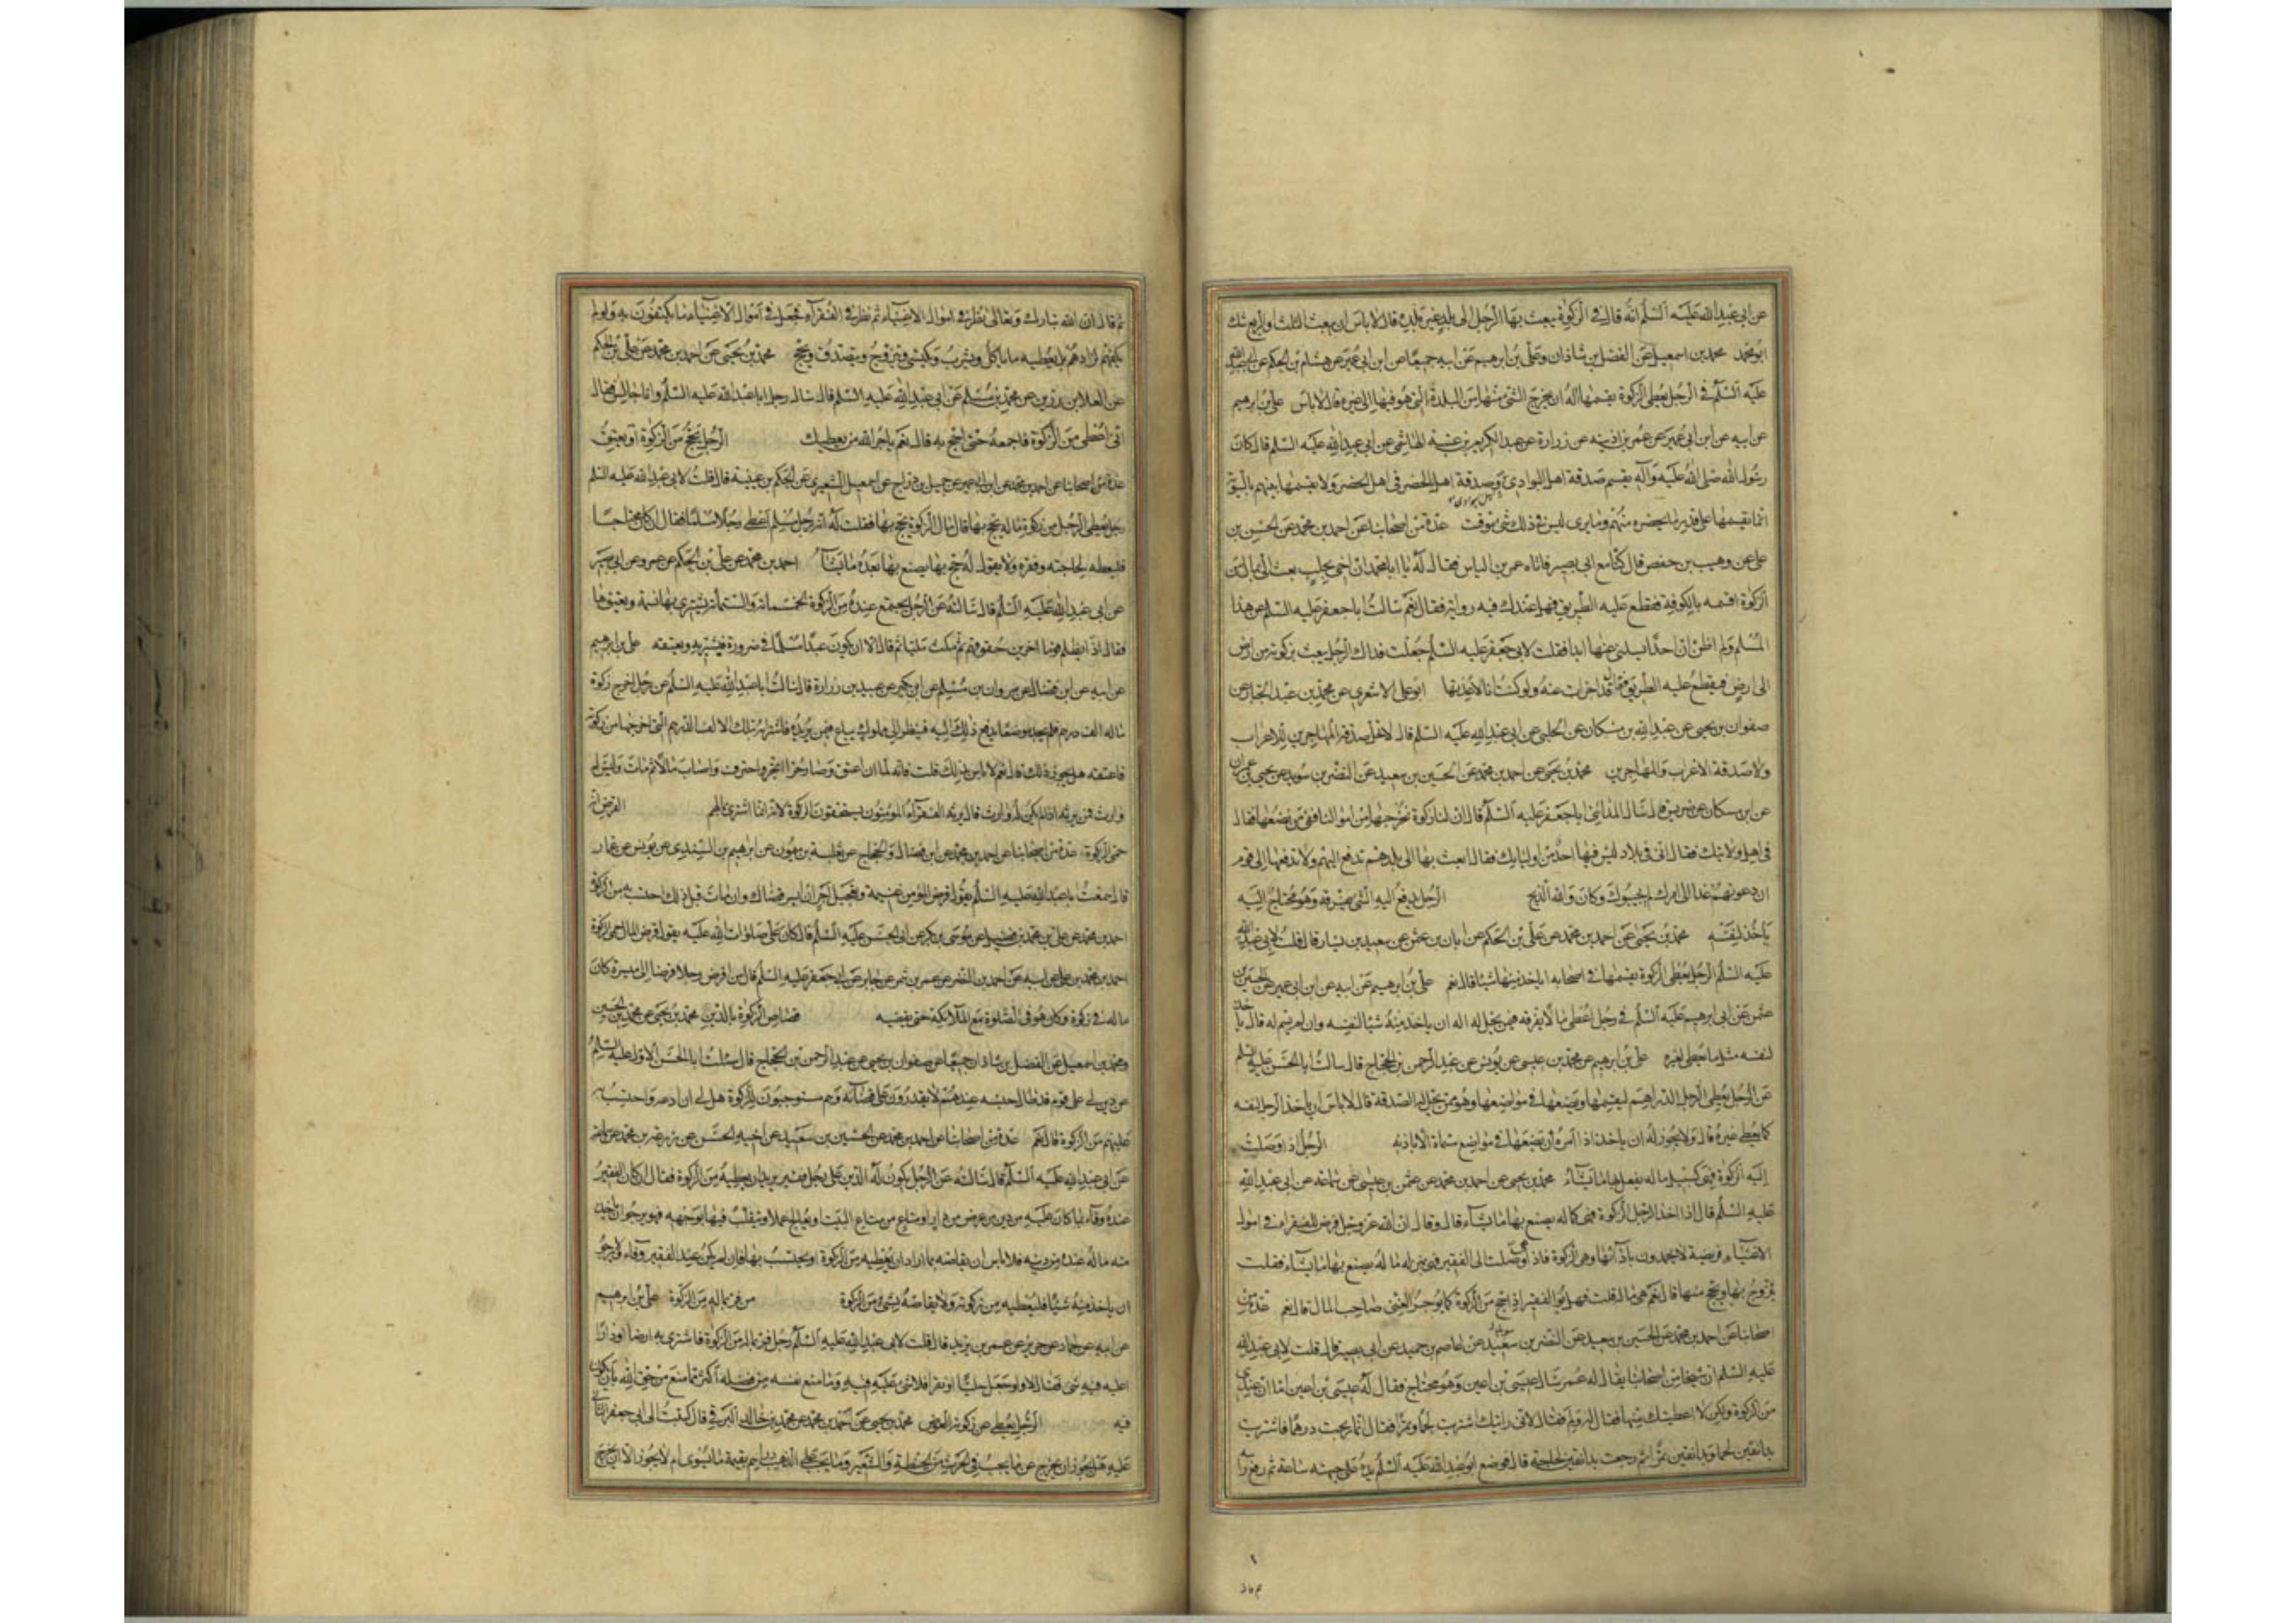 عن ابي عبد الله عليه السلم انه قال في الزكوة يبعث بها الرجل الى بلد غير بلده قال لا باس ان يبعث الثلث او الربع شك
ابو محمد محمد بن اسمعيل عن الفضل بن شاذان وعلي بن ابرهيم عن ابيه جميعا عن ابن ابي عمير عن هشام بن الحكم عن ابي عبد الله
عليه السلم في الرجل يعطى الزكوة يقسمها اله ان يخرج الشئ منها من البلدة التي هو فيها الى غيره قال لا باس علي بن ابرهيم
عن ابيه عن ابن ابي عمير عن عمر بن اذينه عن زرارة عن عبد الكريم بن عتبة الهاشمي عن ابي عبد الله عليه السلم قال كان
رسول الله صلى الله عليه وآله يقسم صدقة اهل البوادي وصدقة اهل الحضر في اهل الحضر ولا يقسمها بينهم بالسوية
انما يقسمها على قدر ما يحضره منهم وما يرى ليس في ذلك شئ موقت عدة من اصحابنا عن احمد بن محمد عن الحسن بن
علي عن وهيب بن حفص قال كنا مع ابي بصير فاتاه عمر بن الياس فقال له يا ابا محمد ان اخي بحلب بعث الي بمال من
الزكوة اقسمه بالكوفة فقطع عليه الطريق فهل عندك فيه رواية فقال نعم سالت ابا جعفر عليه السلم عن هذا
المسئلة ولم اظن ان احدا يسلني عنها ابدا فقلت لابي جعفر عليه السلم جعلت فداك الرجل يبعث بزكوته من ارض
الى ارض فيقطع عليه الطريق فقال قد اجزات عنه ولو كنت انا لاعدتها ابو علي الاشعري عن محمد بن عبد الجبار عن
صفوان بن يحيى عن عبد الله بن مسكان عن الحلبي عن ابي عبد الله عليه السلم قال لا تحل صدقة المهاجرين للاعراب
ولا صدقة الاعراب والمهاجرين محمد بن يحيى عن احمد بن محمد عن الحسين بن سعيد عن النضر بن سويد عن يحيى بن عمران
عن ابن مسكان عن ضريس قال سال المدائني ابا جعفر عليه السلم قال ان لنا زكوة نخرجها من اموالنا ففي من نضعها فقال
في اهل ولايتك فقال اني في بلاد ليس فيها احد من اوليائك فقال ابعث بها الى بلدهم تدفع اليهم ولا تدفعها الى قوم
ان دعوتهم غدا الى امرك لم يجيبوك وكان والله الذبح الرجل يدفع اليه الشئ يفرقه وهو محتاج اليه
ياخذ لنفسه محمد بن يحيى عن احمد بن محمد عن علي بن الحكم عن ابان بن عثمن عن سعيد بن يسار قال قلت لابي عبد الله
عليه السلم الرجل يعطى الزكوة يقسمها في اصحابه اياخذ منها شيئا قال نعم علي بن ابرهيم عن ابيه عن ابن ابي عمير عن الحسين بن
عثمن عن ابي ابرهيم عليه السلم في رجل اعطي مالا يفرقه فيمن يحل له اله ان ياخذ منه شيئا لنفسه وان لم يسم له قال ياخذ
لنفسه مثل ما يعطي غيره علي بن ابرهيم عن محمد بن عيسى عن يونس عن عبد الرحمن بن الحجاج قال سالت ابا الحسن عليه السلم
عن الرجل يعطي الرجل الدراهم ليقسمها ويضعها في مواضعها وهو ممن يحل له الصدقة قال لا باس ان ياخذ الرجل لنفسه
كما يعطي غيره قال ولا يجوز له ان ياخذ اذا امره ان يضعها في مواضع مسماة الا باذنه الرجل اذا وصلت
اليه الزكوة فهي كسبيل ماله يفعل بها ما يشاء محمد بن يحيى عن احمد بن محمد عن عثمن بن عيسى عن سماعه عن ابي عبد الله
عليه السلم قال اذا اخذ الرجل الزكوة فهي كماله يصنع بها ما يشاء قال وقال ان الله عز وجل فرض للفقراء في اموال
الاغنياء فريضة لا يحمدون بادائها وهي الزكوة فاذا وصلت الى الفقير فهي بمنزلة ماله يصنع بها ما يشاء فقلت
يتزوج بها ويحج منها قال نعم هي ماله قلت فهل يوجر الفقير اذا حج من الزكوة كما يوجر الغني صاحب المال قال نعم عدة من
اصحابنا عن احمد بن محمد عن الحسين بن سعيد عن النضر بن سعيد عن عاصم بن حميد عن ابي بصير قال قلت لابي عبد الله
عليه السلم ان شيخا من اصحابنا يقال له عمر سال عيسى بن اعين وهو محتاج فقال له عيسى بن اعين اما ان عندي
من الزكوة ولكن لا اعطيتك منها فقال له ولم فقال لاني رايتك اشتريت لحما وتمرا فقال انما ربحت درهما فاشتريت
بدانقين لحما وبدانقين تمرا ثم رجعت بدانقين لحاجة قال فوضع ابو عبد الله عليه السلم يده على جبهته ساعة ثم رفع راسه
ثم قال ان الله تبارك وتعالى نظر في اموال الاغنياء ثم نظر في الفقراء فجعل في اموال الاغنياء ما يكتفون به ولو لم
يكفهم لزادهم بل يعطيه ما ياكل ويشرب ويكتسي ويتزوج ويتصدق ويحج محمد بن يحيى عن احمد بن محمد عن علي بن الحكم
عن العلا بن رزين عن محمد بن مسلم عن ابي عبد الله عليه السلم قال سال رجل ابا عبد الله عليه السلم وانا جالس فقال
اني اعطى من الزكوة فاجمعه حتى احج به قال نعم ياجر الله من يعطيك الرجل يحج من الزكوة او يعتق
عدة من اصحابنا عن احمد بن محمد عن ابن ابي عمير عن جميل بن دراج عن اسمعيل الشعيري عن الحكم بن عيينة قال قلت لابي عبد الله عليه السلم
رجل يعطي الرجل من زكوة ماله يحج بها قال مال الزكوة يحج بها فقلت له انه رجل مسلم اعطى رجلا مسلما فقال ان كان محتاجا
فليعطه لحاجته وفقره ولا يقول له حج بها يصنع بها بعد ما يشاء احمد بن محمد عن علي بن الحكم عن عمرو عن ابي بصير
عن ابي عبد الله عليه السلم قال سالته عن الرجل يجتمع عنده من الزكوة الخمسمائة والستمائة يشتري بها نسمة ويعتقها
فقال اذا يظلم قوما اخرين حقوقهم ثم مكث مليا ثم قال الا ان يكون عبدا مسلما في ضرورة فيشتريه ويعتقه علي بن ابرهيم
عن ابيه عن ابن فضال عن مروان بن مسلم عن ابن بكير عن عبيد بن زرارة قال سالت ابا عبد الله عليه السلم عن رجل اخرج زكوة
ماله الف درهم فلم يجد موضعا يدفع ذلك اليه فنظر الى مملوك يباع فيمن يزيده فاشتراه بتلك الالف الدرهم التي اخرجها من زكوته
فاعتقه هل يجوز ذلك قال نعم لا باس بذلك قلت فانه لما ان اعتق وصار حرا اتجر واحترف واصاب مالا ثم مات وليس له
وارث فمن يرثه اذا لم يكن له وارث قال يرثه الفقراء المومنون يستحقون الزكوة لانه انما اشتري بمالهم القرض انه
حمى الزكوة عدة من اصحابنا عن احمد بن محمد عن ابن فضال والحجاج عن ثعلبة بن ميمون عن ابرهيم بن السندي عن يونس بن عمار
قال سمعت ابا عبد الله عليه السلم يقول قرض المومن غنيمة وتعجيل اجر ان ايسر قضاك وان مات قبل ذلك احتسب به من الزكوة
احمد بن محمد عن علي بن محمد بن فضيل عن موسى بن بكر عن ابي الحسن عليه السلم قال كان علي صلوات الله عليه يقول قرض المال حمى الزكوة
احمد بن محمد بن علي عن ابيه عن احمد بن النضر عن عمرو بن شمر عن جابر عن ابي جعفر عليه السلم قال من اقرض رجلا قرضا الى ميسرة كان
ماله في زكوة وكان هو في الصلوة مع الملائكة حتى يقضيه قصاص الزكوة بالدين محمد بن يحيى عن محمد بن الحسين
ومحمد بن اسمعيل عن الفضل بن شاذان جميعا عن صفوان بن يحيى عن عبد الرحمن بن الحجاج قال سئلت ابا الحسن الاول عليه السلم
عن دين لي على قوم قد طال حبسه عندهم لا يقدرون على قضائه وهم مستوجبون للزكوة هل لي ان ادعه واحتسب به
عليهم من الزكوة قال نعم عدة من اصحابنا عن احمد بن محمد عن الحسين بن سعيد عن اخيه الحسن عن زرعة بن محمد عن سماعة
عن ابي عبد الله عليه السلم قال سالته عن الرجل يكون له الدين على رجل فقير يريد ان يعطيه من الزكوة فقال ان كان الفقير
عنده وفاء بما كان عليه من دين من عرض من دار او متاع من متاع البيت او يعالج عملا يتقلب فيها بوجهه فهو يرجوا ان ياخذ
منه ماله عنده من دينه فلا باس ان يقاصه بما اراد ان يعطيه من الزكوة او يحتسب بها فان لم يكن عند الفقير وفاء ولا يرجو
ان ياخذ منه شيئا فليعطيه من زكوته ولا يقاصه بشئ من الزكوة من فر بماله من الزكوة علي بن ابرهيم
عن ابيه عن حماد عن حريز عن عمر بن يزيد قال قلت لابي عبد الله عليه السلم رجل فر بماله من الزكوة فاشترى به ارضا او دارا
اعليه فيه شئ فقال لا ولو جعله حليا او نقرا فلا شئ عليه فيه وما منع نفسه من فضله اكثر مما منع من حق الله بان يكون
فيه الرجل يعطي عن زكوته العوض محمد بن يحيى عن احمد بن محمد عن محمد بن خالد البرقي قال كتبت الى ابي جعفر الثاني
عليه هل يجوز ان يخرج عن ما يجب في الحرث من الحنطة والشعير وما يجب على الذهب دراهم بقيمة ما يسوى ام لا يجوز الا ان يخرج